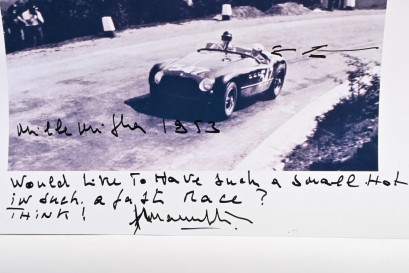 Mille Miglia 1953
Would Like To Have such a small Hot
in such a fast Race ?
THINK !